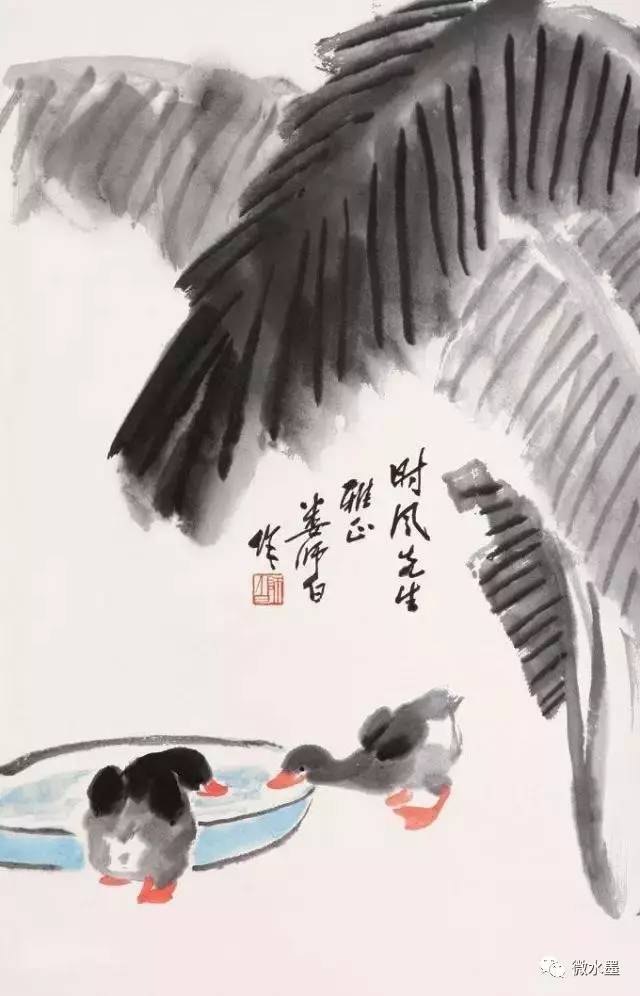 时风先生
雅正
娄师白
作
微水墨